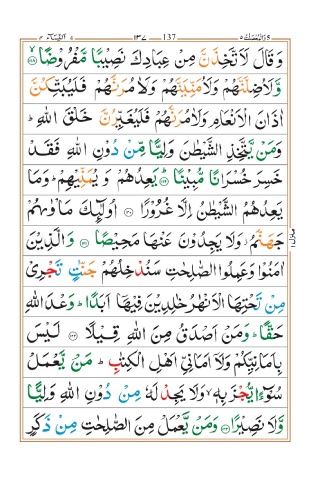 النسآء ٤ ١٣٧ 137 والمحصنٰت ٥
وَقَالَ لَاَتَّخِذَنَّ مِنْ عِبَادِكَ نَصِيْبًا مَّفْرُوْضًا ۙ‏﴿۱۱۸﴾
وَّلَاُضِلَّنَّهُمْ وَلَاُمَنِّيَنَّهُمْ وَلَاٰمُرَنَّهُمْ فَلَيُبَتِّكُنَّ
اٰذَانَ الْاَنْعَامِ وَلَاٰمُرَنَّهُمْ فَلَيُغَيِّرُنَّ خَلْقَ اللّٰهِ ؕ
وَمَنْ يَّتَّخِذِ الشَّيْطٰنَ وَلِيًّا مِّنْ دُوْنِ اللّٰهِ فَقَدْ
خَسِرَ خُسْرَانًا مُّبِيْنًا ؕ‏﴿۱۱۹﴾ يَعِدُهُمْ وَيُمَنِّيْهِمْ ؕ وَمَا
يَعِدُهُمُ الشَّيْطٰنُ اِلَّا غُرُوْرًا‏﴿۱۲۰﴾ اُولٰٓئِكَ مَاْوٰٮهُمْ
جَهَنَّمُ وَلَا يَجِدُوْنَ عَنْهَا مَحِيْصًا‏﴿۱۲۱﴾ وَالَّذِيْنَ
اٰمَنُوْا وَعَمِلُوا الصّٰلِحٰتِ سَنُدْخِلُهُمْ جَنّٰتٍ تَجْرِىْ
مِنْ تَحْتِهَا الْاَنْهٰرُ خٰلِدِيْنَ فِيْهَاۤ اَبَدًا ؕ وَعْدَ اللّٰهِ
حَقًّا ؕ وَمَنْ اَصْدَقُ مِنَ اللّٰهِ قِيْلًا‏﴿۱۲۲﴾ لَـيْسَ
بِاَمَانِيِّكُمْ وَلَاۤ اَمَانِىِّ اَهْلِ الْكِتٰبِ ؕ مَنْ يَّعْمَلْ
سُوْٓءًا يُّجْزَ بِهٖ ۙ وَلَا يَجِدْ لَهٗ مِنْ دُوْنِ اللّٰهِ وَلِيًّا
وَّلَا نَصِيْرًا‏﴿۱۲۳﴾ وَمَنْ يَّعْمَلْ مِنَ الصّٰلِحٰتِ مِنْ ذَكَرٍ